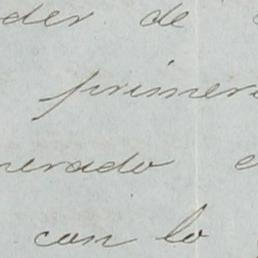 der de
primer
nerado e
con lo